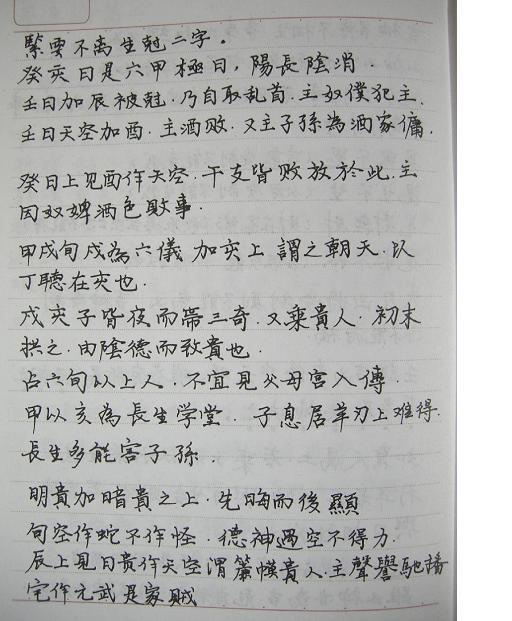 緊要不离生尅二字.
癸亥日是六甲極日,陽長陰消.
壬日加辰被尅.乃自取乱首.主奴僕犯主.
壬日天空加酉.主酒败.又主子孫為酒家傭.
癸日上见酉作天空.干支皆败於此.主
因奴婢酒色败事.
甲戌旬戌為六儀加亥上謂之朝天.以
丁聽在亥也.
戌亥子皆夜而帶三奇.又乘貴人.初末
拱之.由陰德而致貴也.
占六旬以上人.不宜見父母宮入傳.
甲以亥為長生学堂.子息居羊刃上难得.
長生多能害子孫.
明貴加暗貴之上.先晦而後顯
旬空作蛇不作怪.德神遇空不得力.
辰上見日贵作天空渭簾幙貴人.主聲譽馳播
宅作元武是家賊